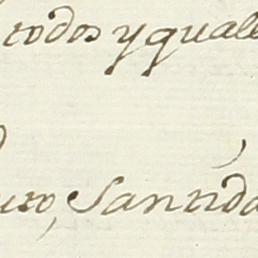 todos yguale
uro, Santida